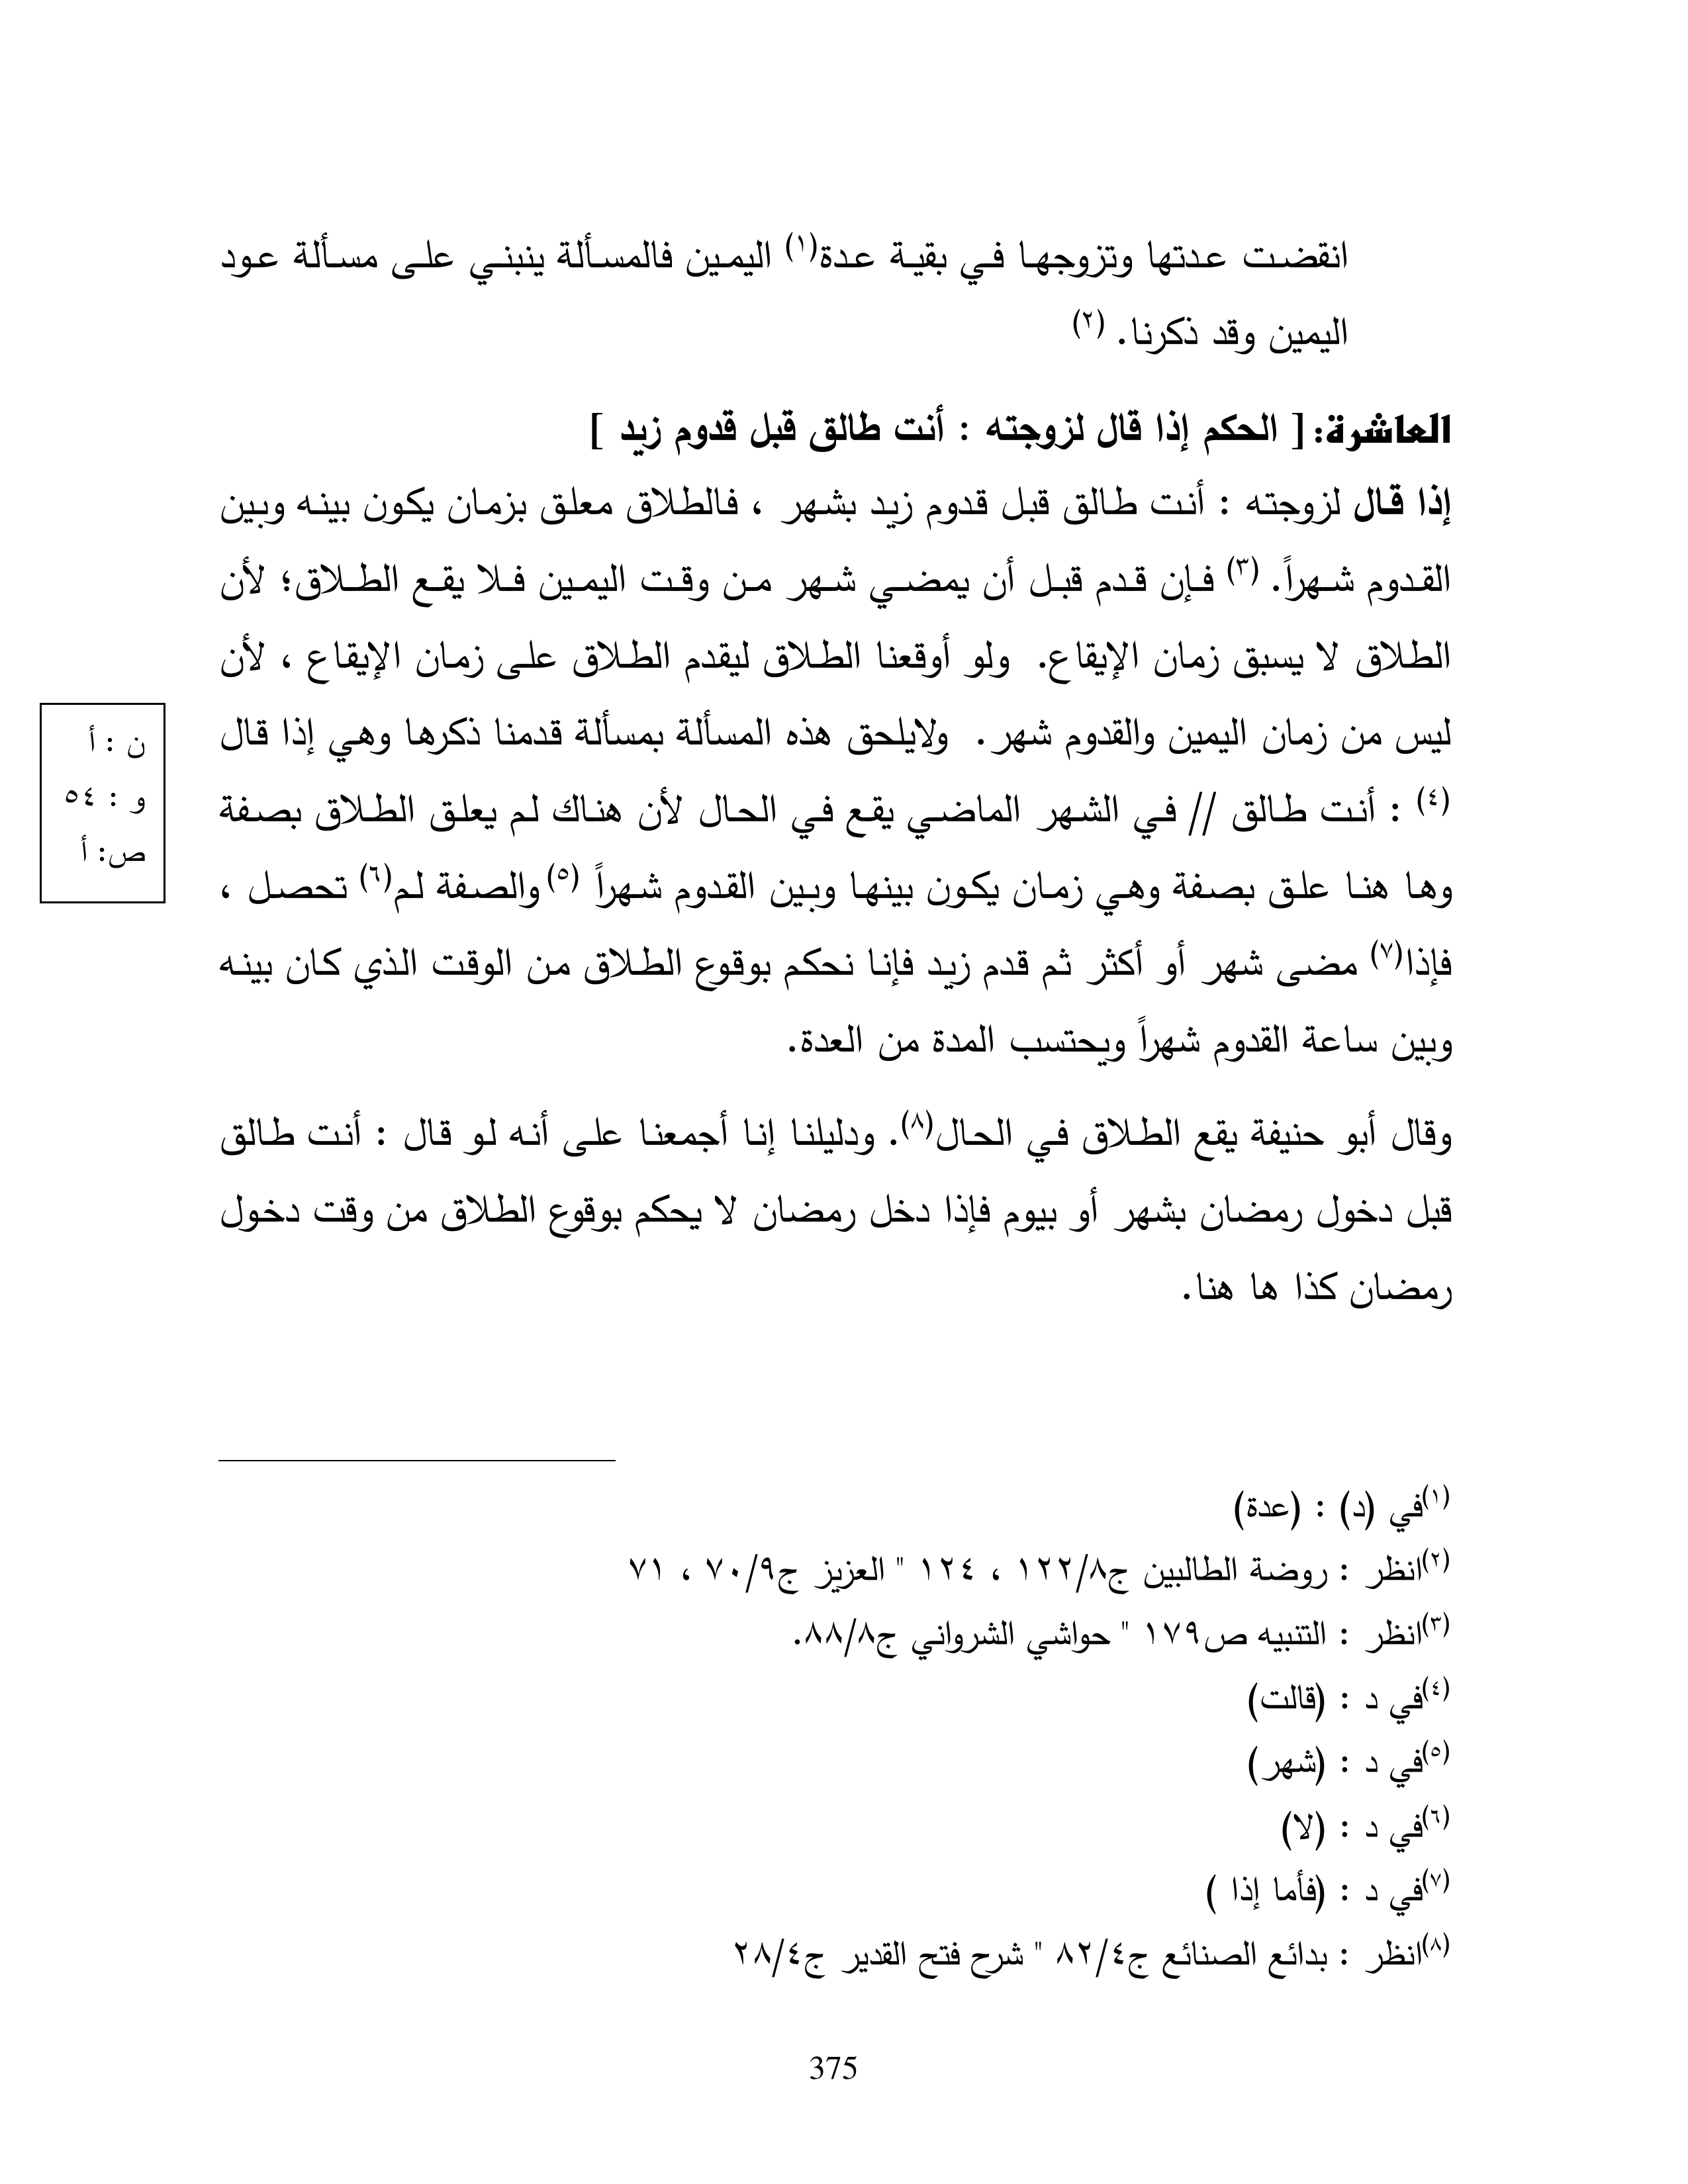 انقضت عدتها وتزوجها في بقية عدة(١) اليمين فالمسألة ينبني على مسألة عود
اليمين وقد ذكرنا. (٢)
العاشرة: [ الحكم إذا قال لزوجته : أنت طالق قبل قدوم زيد ]
إذا قال لزوجته : أنت طالق قبل قدوم زيد بشهر ، فالطلاق معلق بزمان يكون بينه وبين
القدوم شهراً. (٣) فإن قدم قبل أن يمضي شهر من وقت اليمين فلا يقع الطلاق؛ لأن
الطلاق لا يسبق زمان الإيقاع. ولو أوقعنا الطلاق ليقدم الطلاق على زمان الإيقاع ، لأن
ليس من زمان اليمين والقدوم شهر. ولايلحق هذه المسألة بمسألة قدمنا ذكرها وهي إذا قال
(٤) : أنت طالق // في الشهر الماضي يقع في الحال لأن هناك لم يعلق الطلاق بصفة
وها هنا علق بصفة وهي زمان يكون بينها وبين القدوم شهراً (٥) والصفة لم(٦) تحصل ،
فإذا(٧) مضى شهر أو أكثر ثم قدم زيد فإنا نحكم بوقوع الطلاق من الوقت الذي كان بينه
وبين ساعة القدوم شهراً ويحتسب المدة من العدة.
وقال أبو حنيفة يقع الطلاق في الحال(٨). ودليلنا إنا أجمعنا على أنه لو قال : أنت طالق
قبل دخول رمضان بشهر أو بيوم فإذا دخل رمضان لا يحكم بوقوع الطلاق من وقت دخول
رمضان كذا ها هنا.
ن : أ
و : ٥٤
ص: أ
(١)في (د) : (عدة)
(٢)انظر : روضة الطالبين ج٨/١٢٢ ، ١٢٤ " العزيز ج٩/٧٠ ، ٧١
(٣)انظر : التنبيه ص١٧٩ " حواشي الشرواني ج٨/٨٨.
(٤)في د : (قالت)
(٥)في د : (شهر)
(٦)في د : (لا)
(٧)في د : (فأما إذا )
(٨)انظر : بدائع الصنائع ج٤/٨٢ " شرح فتح القدير ج٤/٢٨
375